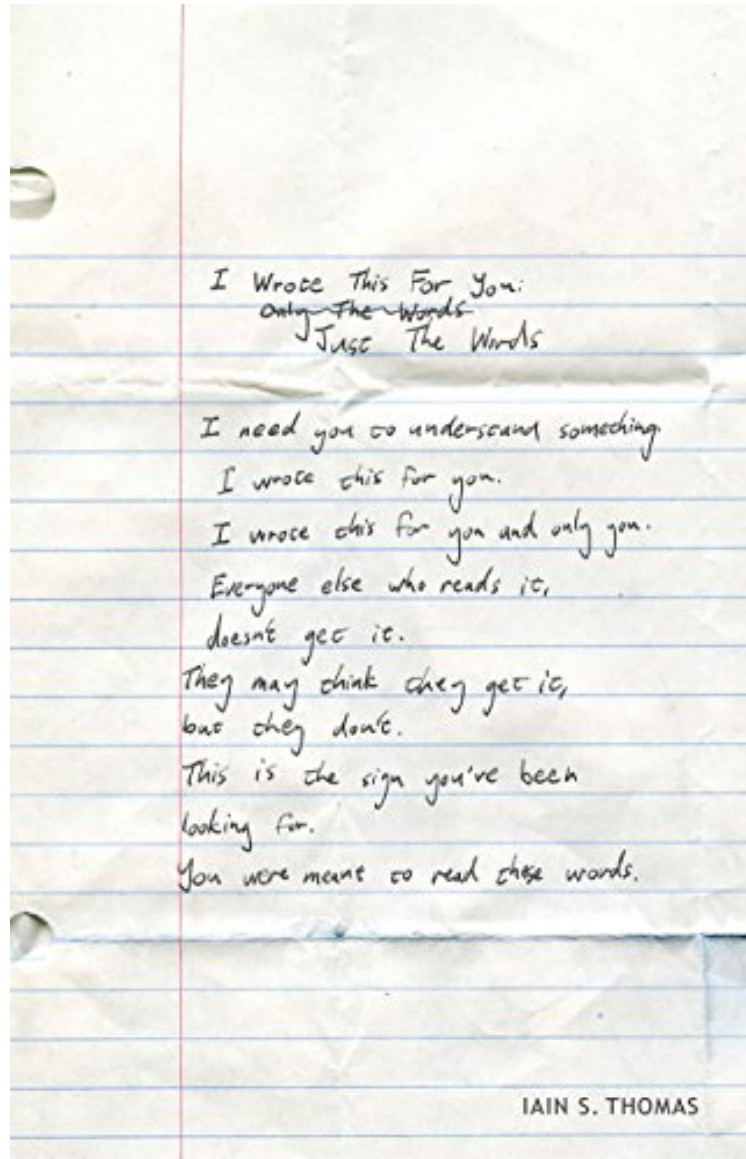 I Wrote This For You:
Only The Words
Just The Words
I need you to understand something.
I wrote this for you.
I wrote this for you and only you.
Everyone else who reads it,
doesn't get it.
They may think they get it,
but they don't.
This is the sign you've been
looking for.
You were meant to read these words.
IAIN S. THOMAS